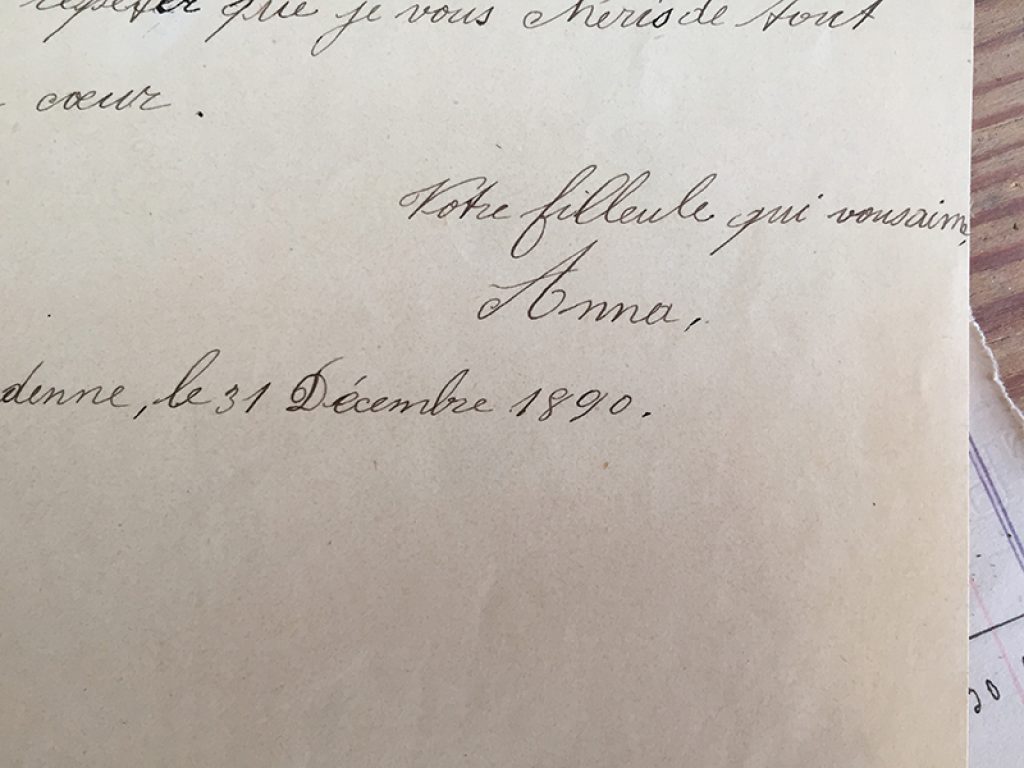 répéter que je vous chéris de tout
cœur.
Votre filleule qui vous aime,
Anna,
denne, le 31 Décembre 1890.
20